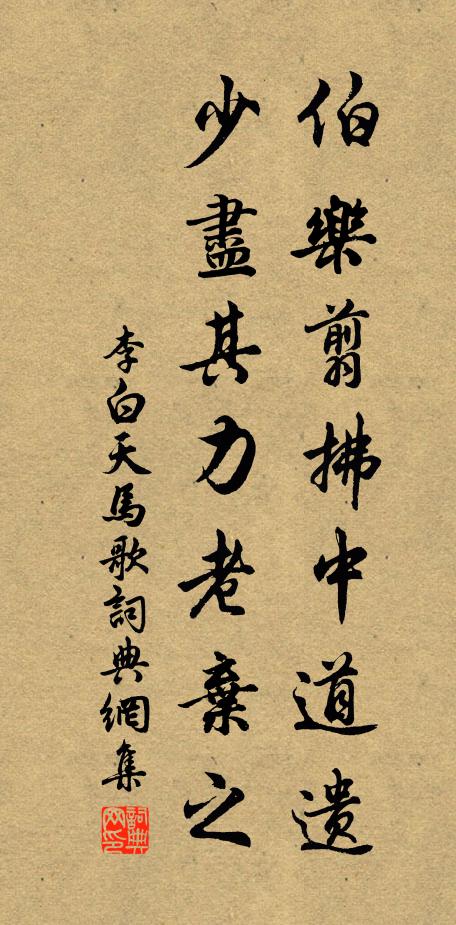 伯樂翦拂中道遺
少盡其力老棄之
李白天馬歌詞典網集
詞典網印